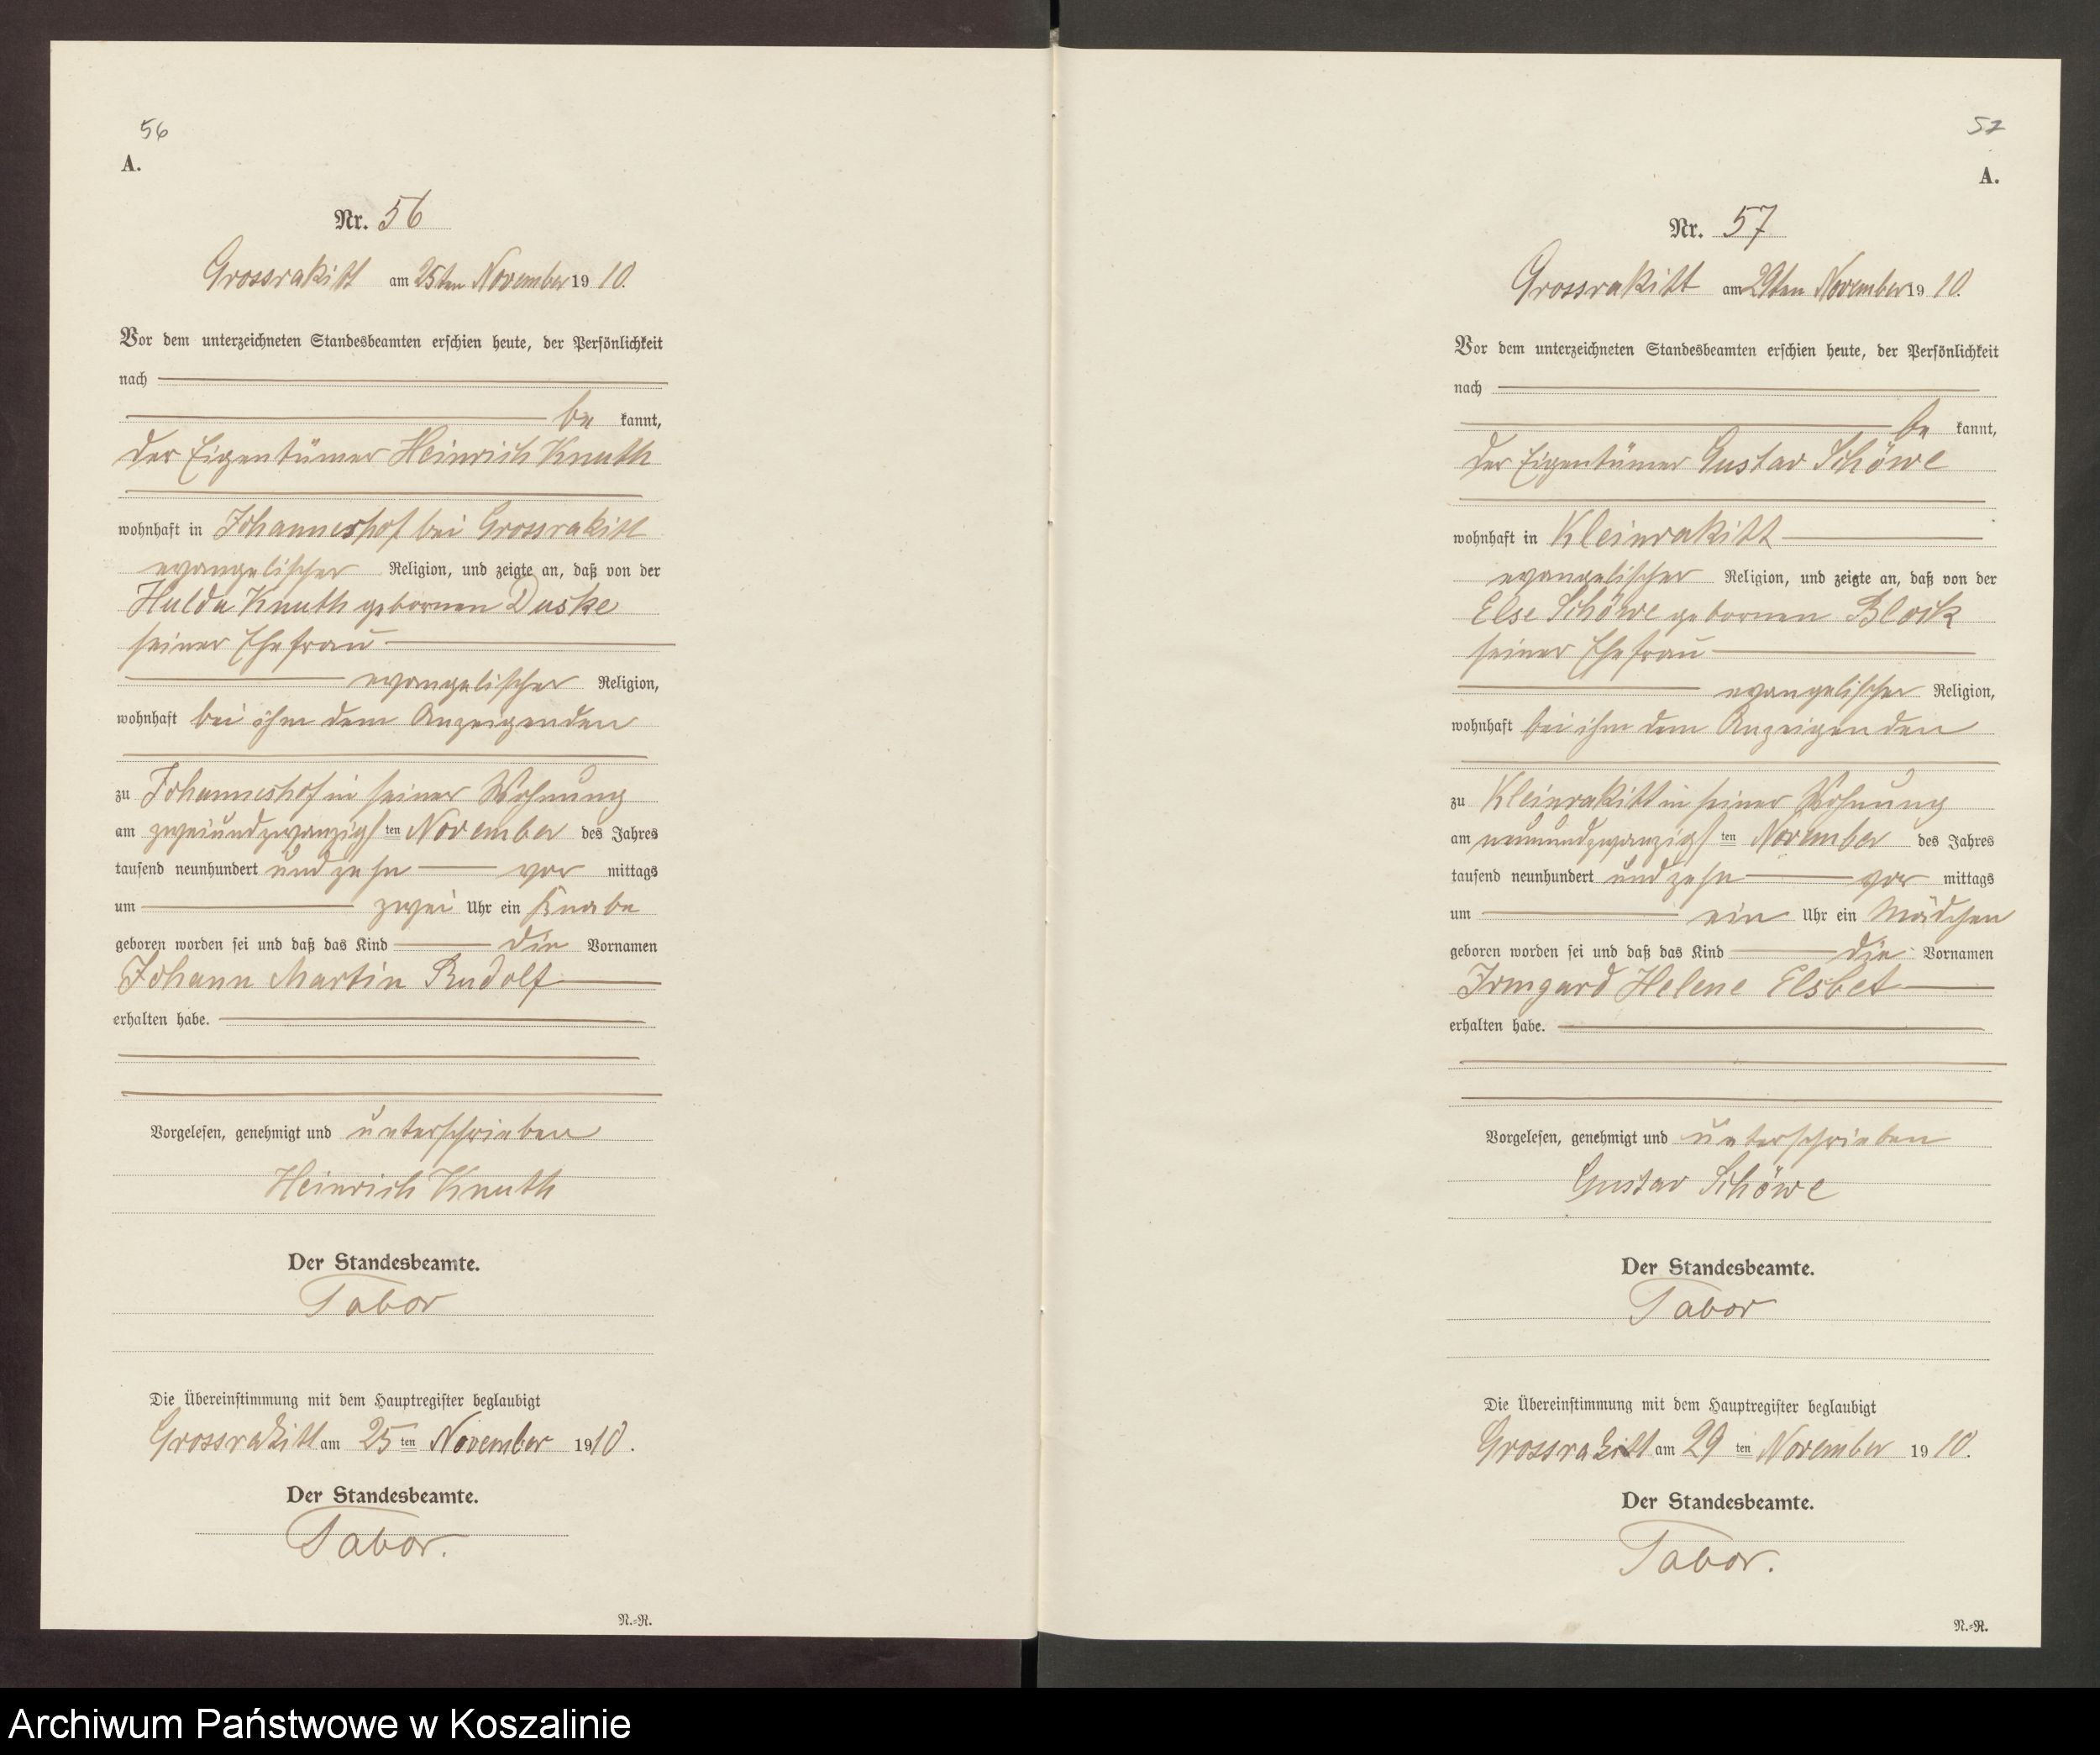 56
A.
Nr. 56
Grossrakitt am 25ten November 1910.
Vor dem unterzeichneten Standesbeamten erschien heute, der Persönlichkeit
nach
be kannt,
der Eigentümer Heinrich Knuth
wohnhaft in Johanneshof bei Grossrakitt
evangelischer Religion, und zeigte an, daß von der
Hulda Knuth gebornen Duske
seiner Ehefrau
evangelischer Religion,
wohnhaft bei ihm dem Anzeigenden
zu Johanneshof in seiner Wohnung
am zweiundzwanzigsten November des Jahres
tausend neunhundert und zehn vor mittags
um zwei Uhr ein Knabe
geboren worden sei und daß das Kind die Vornamen
Johann Martin Rudolf
erhalten habe.
Vorgelesen, genehmigt und unterschrieben
Heinrich Knuth
Der Standesbeamte.
Tabor
Die Übereinstimmung mit dem Hauptregister beglaubigt
Grossrakitt am 25ten November 1910.
Der Standesbeamte.
Tabor.
N.=R.
57
A.
Nr. 57
Grossrakitt am 29ten November 1910.
Vor dem unterzeichneten Standesbeamten erschien heute, der Persönlichkeit
nach
be kannt,
der Eigentümer Gustav Schöwe
wohnhaft in Kleinrakitt
evangelischer Religion, und zeigte an, daß von der
Else Schöwe gebornen Block
seiner Ehefrau
evangelischer Religion,
wohnhaft bei ihm dem Anzeigenden
zu Kleinrakitt in seiner Wohnung
am neunundzwanzigsten November des Jahres
tausend neunhundert und zehn vor mittags
um ein Uhr ein Mädchen
geboren worden sei und daß das Kind die Vornamen
Irmgard Helene Elsbet
erhalten habe.
Vorgelesen, genehmigt und unterschrieben
Gustav Schöwe
Der Standesbeamte.
Tabor
Die Übereinstimmung mit dem Hauptregister beglaubigt
Grossrakitt am 29ten November 1910.
Der Standesbeamte.
Tabor.
N.=R.
Archiwum Państwowe w Koszalinie